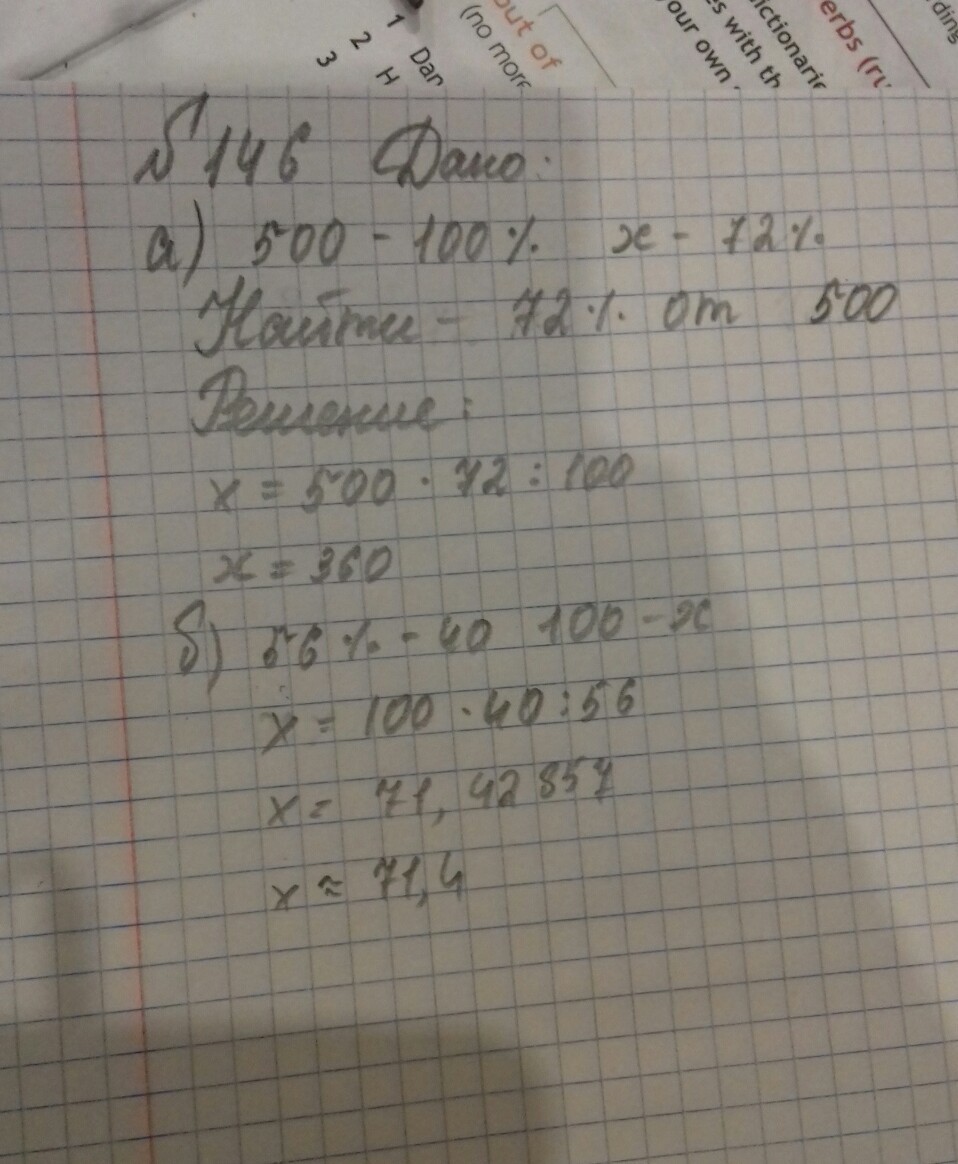 1 Dan
2 H
3
out of
(no more
your own
es with th
ictionarie
erbs (ru
ding
№ 146 Дано:
а) 500 - 100% x - 72%
Найти - 72% от 500
Решение:
x = 500 · 72 : 100
x = 360
б) 56% - 40 100 - x
x = 100 · 40 : 56
x = 71,42857
x ≈ 71,4